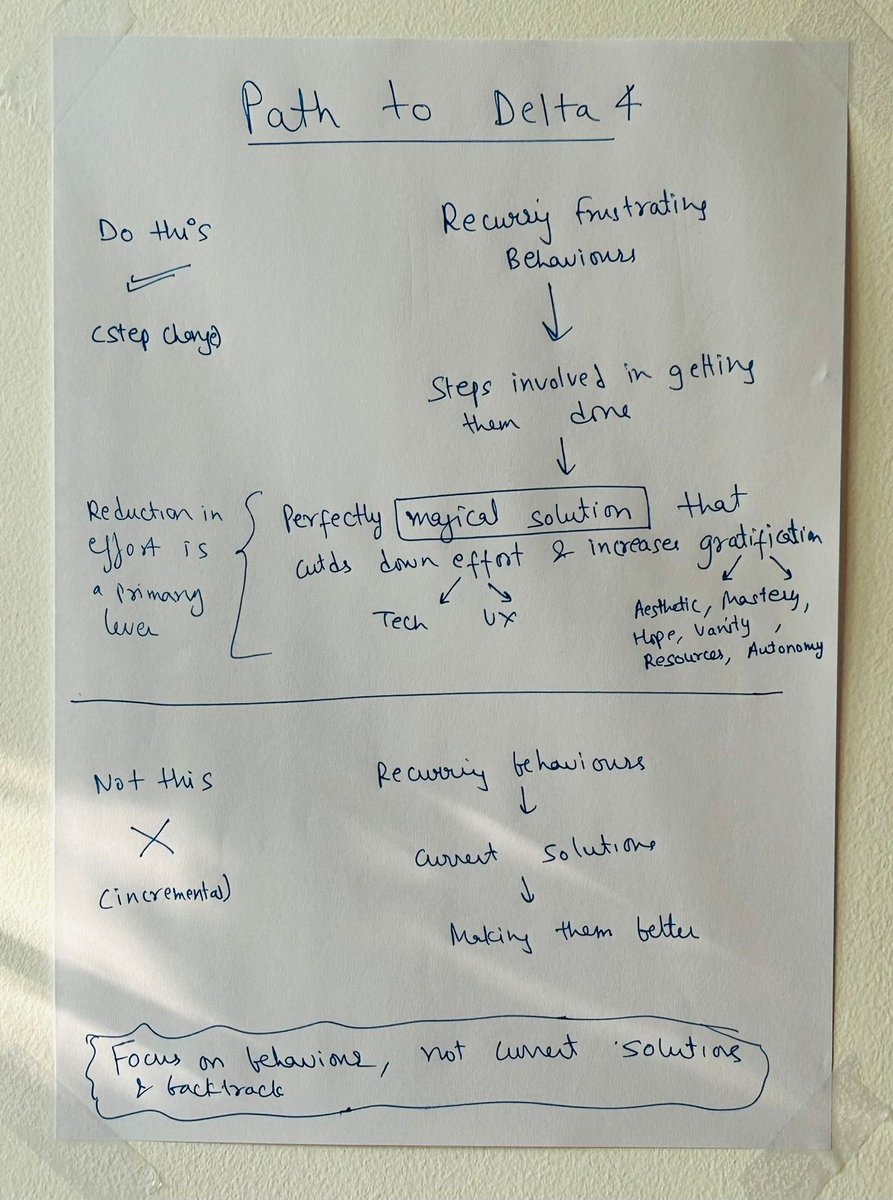 Path to Delta 4
Do this
(step change)
Recurring frustrating
Behaviours
Steps involved in getting
them done
Reduction in
effort is
a primary
lever
Perfectly magical solution that
cutds down effort & increases gratification
Tech UX
Aesthetic, Mastery,
Hope, Vanity,
Resources, Autonomy
Not this
(incremental)
Recurring behaviours
Current solutions
Making them better
Focus on behaviour, not current solutions
& backtrack